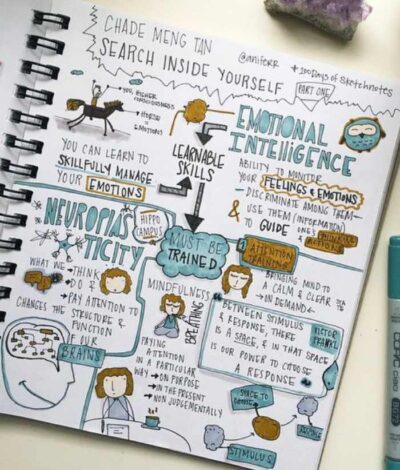 CHADE MENG TAN
SEARCH INSIDE YOURSELF
PART ONE
@aniferr
+ 100DAYS OF SKETCHNOTES
YOU, HIGHER
CONSCIOUSNESS
HORSE =
EMOTIONS
YOU CAN LEARN TO
SKILLFULLY MANAGE
YOUR EMOTIONS
LEARNABLE
SKILLS
EMOTIONAL
INTELLIGENCE
ABILITY TO MONITOR
YOUR FEELINGS & EMOTIONS
DISCRIMINATE AMONG THEM
& USE THEM (INFORMATION)
TO GUIDE ONE'S THINKING
ACTIONS
NEUROPLAS
TICITY
HIPPO
CAMPUS
MUST BE
TRAINED
WHAT WE
THINK
DO &
PAY ATTENTION TO
CHANGES THE
STRUCTURE &
FUNCTION
OF OUR
BRAINS
MINDFULNESS
BREATHING
PAYING
ATTENTION
IN A PARTICULAR
WAY → ON PURPOSE
→ IN THE PRESENT
→ NON JUDGEMENTALLY
1 ATTENTION
TRAINING
BRINGING MIND TO
A CALM & CLEAR STATE
→ ON DEMAND ←
"BETWEEN STIMULUS
& RESPONSE, THERE
IS A SPACE, & IN THAT SPACE
IS OUR POWER TO CHOOSE
A RESPONSE
VICTOR
FRANKL
SPACE TO
CHOOSE
RESPONSE
STIMULUS
COPIC